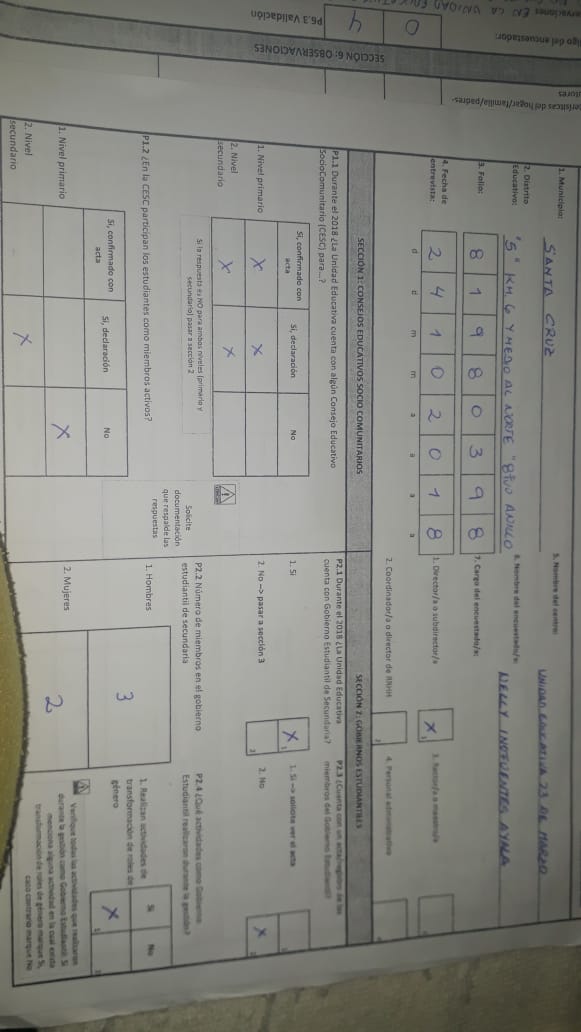 servaciones EN LA UNIDAD
igo del encuestador:
P6.3 Validación
0 4
SECCIÓN 6: OBSERVACIONES
terísticas del hogar/familia/padres-
utores
1. Municipio: SANTA CRUZ
2. Distrito Educativo: "5" KM. 6 Y MEDIO AL NORTE "8TVO ANILLO
3. Folio: 8 1 9 8 0 3 9 8
4. Fecha de entrevista: 2 4 1 0 2 0 1 8
d d m m a a a a
5. Nombre del centro: UNIDAD EDUCATIVA 23 DE MARZO
6. Nombre del encuestado/a: NELLY INGFUENTES AYMA
7. Cargo del encuestado/a:
1. Director/a o subdirector/a X 1
2. Coordinador/a o director de RRHH 2
4. Personal administrativo
SECCIÓN 1: CONSEJOS EDUCATIVOS SOCIO COMUNITARIOS
P1.1 Durante el 2018 ¿La Unidad Educativa cuenta con algún Consejo Educativo
SocioComunitario (CESC) para...?
Si, confirmado con acta
Si, declaración
No
1. Nivel primario X X
2. Nivel secundario X X
Si la respuesta es NO para ambos niveles (primario y
secundario) pasar a sección 2
Solicite
documentación
que respalde las
respuestas
P1.2 ¿En la CESC participan los estudiantes como miembros activos?
Si, confirmado con acta
Si, declaración
No
1. Nivel primario X
2. Nivel secundario X
SECCIÓN 2: GOBIERNOS ESTUDIANTILES
P2.1 Durante el 2018 ¿La Unidad Educativa
cuenta con Gobierno Estudiantil de Secundaria?
1. Si X 1
2. No --> pasar a sección 3 2
P2.2 Número de miembros en el gobierno
estudiantil de secundaria
1. Hombres 3
2. Mujeres 2
P2.3 ¿Cuenta con un acta/registro de los
miembros del Gobierno Estudiantil?
1. Si --> solicite ver el acta
2. No X
P2.4 ¿Qué actividades como Gobierno
Estudiantil realizaron durante la gestión?
Si No
1. Realizan actividades de
transformación de roles de
género X
Verifique todas las actividades que realizaron
durante la gestión como Gobierno Estudiantil. Si
menciona alguna actividad en la cual exista
transformación de roles de género marque Si,
caso contrario marque No